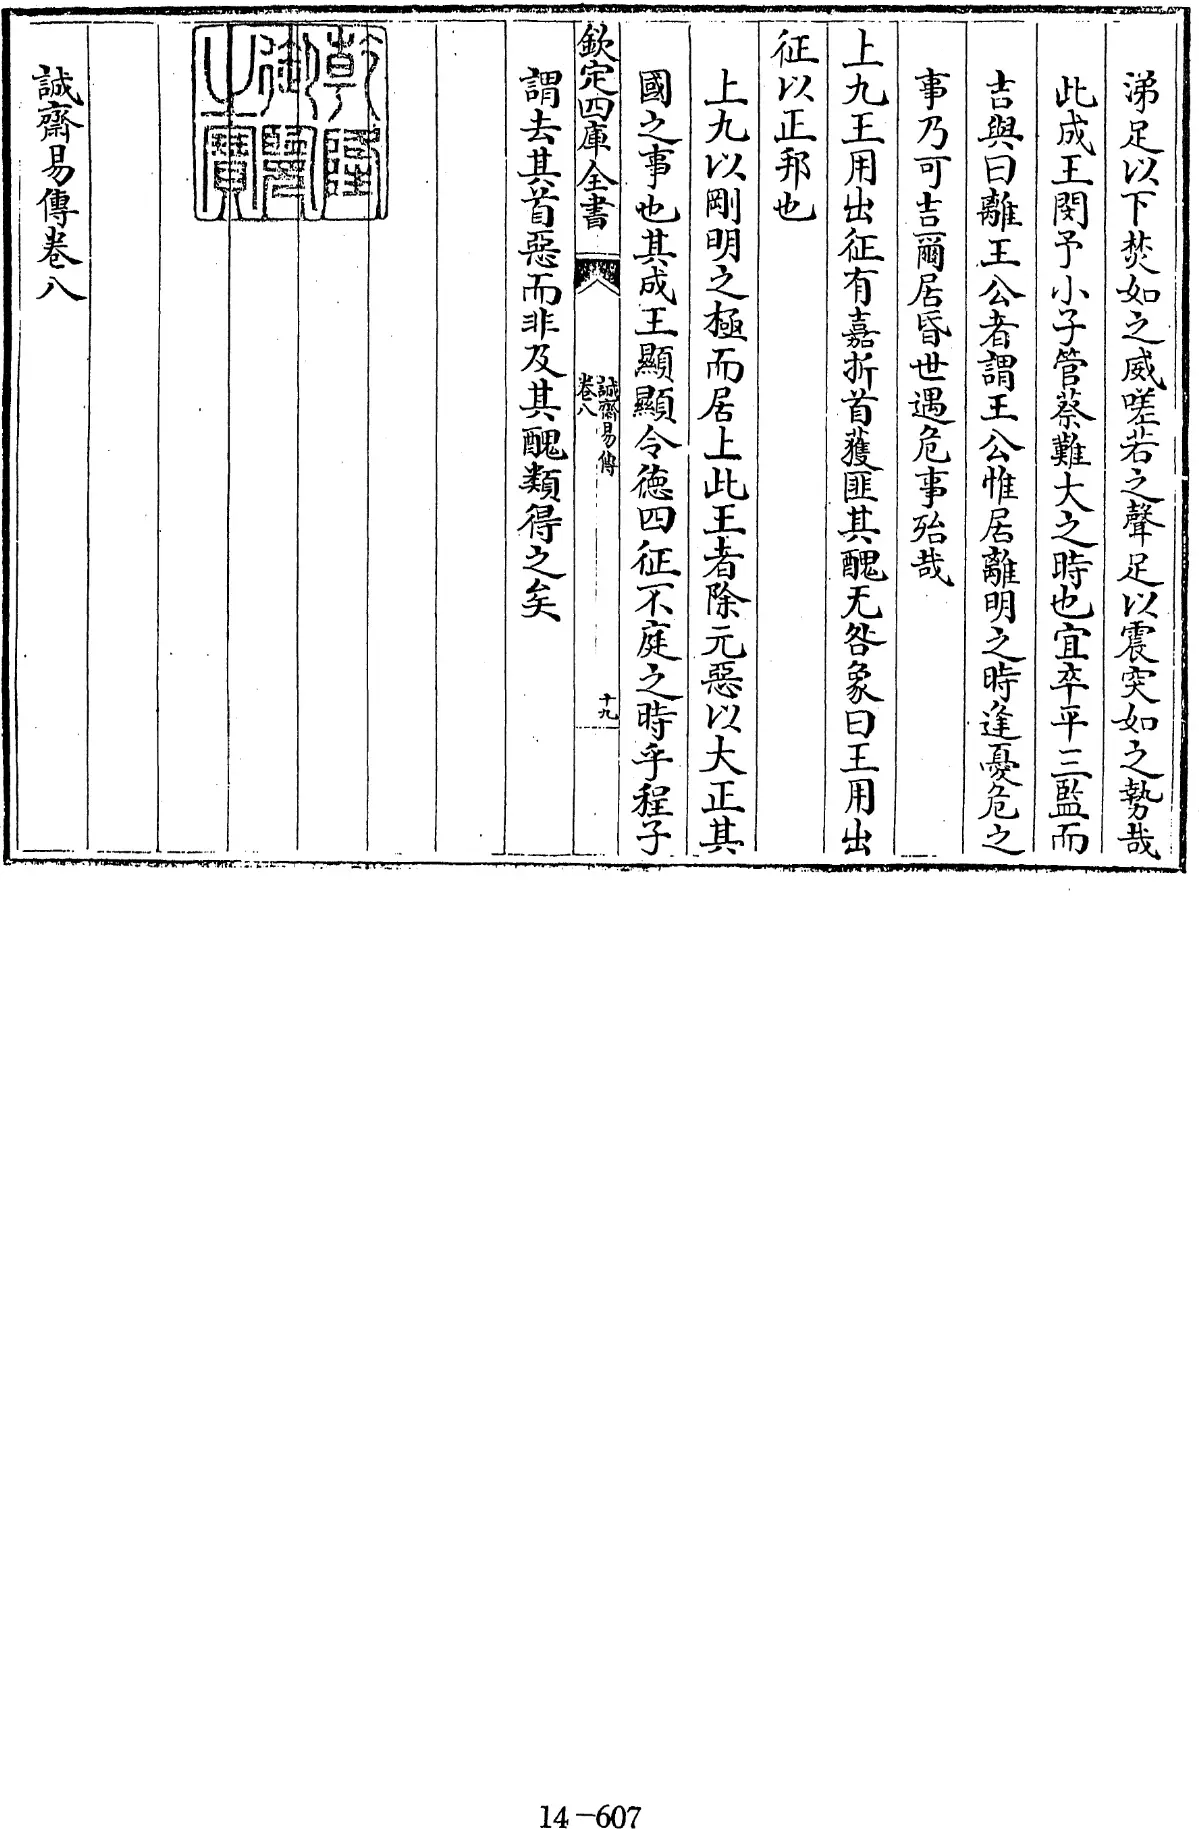 涕足以下焚如之威嗟若之聲足以震突如之勢哉
此成王閔予小子管蔡難大之時也宜卒平三監而
吉與曰離王公者謂王公惟居離明之時逢憂危之
事乃可吉爾居昏世遇危事殆哉
上九王用出征有嘉折首獲匪其醜无咎象曰王用出
征以正邦也
上九以剛明之極而居上此王者除元惡以大正其
國之事也其成王顯顯令德四征不庭之時乎程子
欽定四庫全書
誠齋易傳
卷八
十九
謂去其首惡而非及其醜類得之矣
乾隆
御覽
之寶
誠齋易傳卷八
14-607